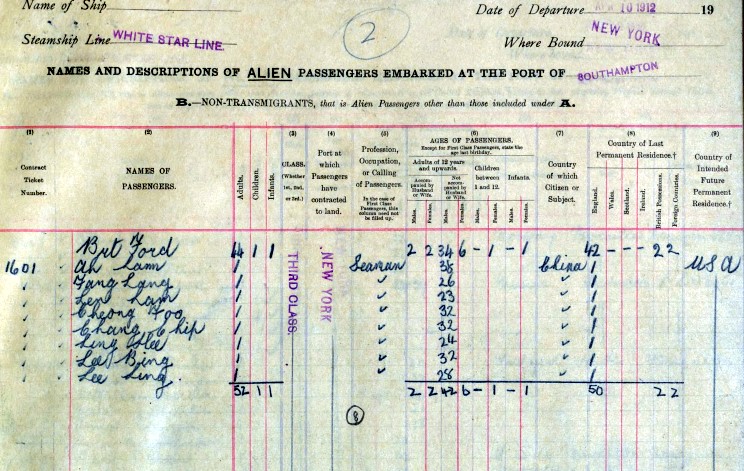 Name of Ship
Date of Departure 10 1912 19
Steamship Line WHITE STAR LINE
2
Where Bound NEW YORK
NAMES AND DESCRIPTIONS OF ALIEN PASSENGERS EMBARKED AT THE PORT OF SOUTHAMPTON
B.—NON-TRANSMIGRANTS, that is Alien Passengers other than those included under A.
(1) (2) (3) (4) (5) (6) (7) (8) (9)
Contract Ticket Number.
NAMES OF PASSENGERS.
Adults. Children. Infants.
CLASS. (Whether 1st, 2nd, or 3rd.)
Port at which Passengers have contracted to land.
Profession, Occupation, or Calling of Passengers.
In the case of First Class Passengers, this column need not be filled up.
AGES OF PASSENGERS.
Except for First Class Passengers, state the age last birthday.
Adults of 12 years and upwards.
Accompanied by Husband or Wife.
Not accompanied by Husband or Wife.
Children between 1 and 12.
Infants.
Males. Females. Males. Females. Males. Females. Males. Females.
Country of which Citizen or Subject.
Country of Last Permanent Residence.†
England. Wales. Scotland. Ireland. British Possessions. Foreign Countries.
Country of Intended Future Permanent Residence.†
Brt Ford 44 1 1 2 2 34 6 - 1 - 1 42 - - - 2 2
1601 Ah Lam 1 Seaman 38 China 1 USA
Fang Lang 1 26 1
Len Lam 1 23 1
Cheong Foo 1 32 1
Chang Chip 1 32 1
Ling Hee 1 24 1
Lee Bing 1 32 1
Lee Ling 1 28 1
52 1 1 2 2 42 6 - 1 - 1 50 2 2
THIRD CLASS.
NEW YORK
8